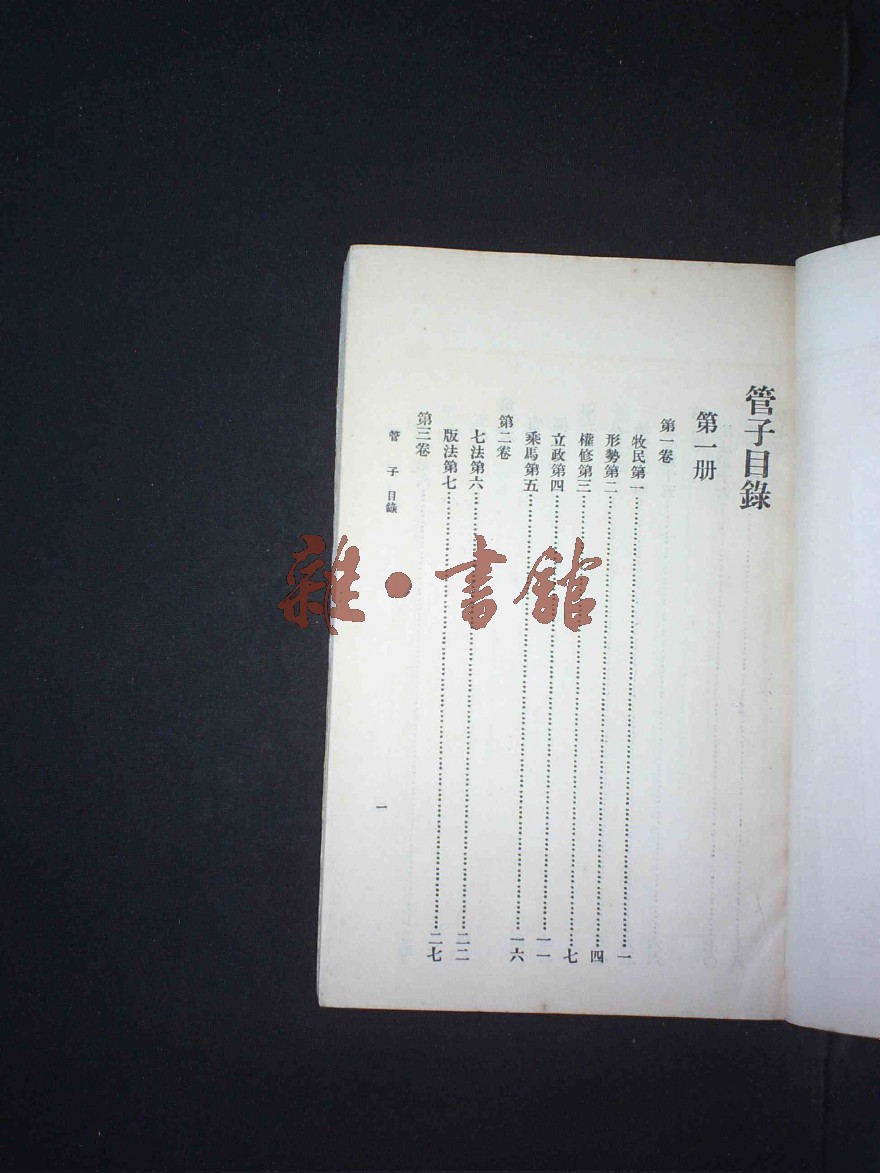 管子目錄
第一册
第一卷
牧民第一……一
形勢第二……四
權修第三……七
立政第四……一一
乘馬第五……一六
第二卷
七法第六……二二
版法第七……二七
第三卷
管子目錄
一
雜·書館